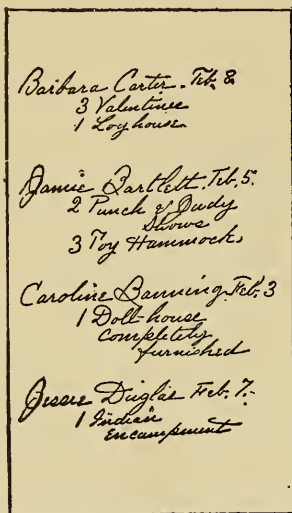 Barbara Carter. Feb. 8
3 Valentines
1 Log house
Jamie Bartlett. Feb. 5.
2 Punch & Judy
Shows
3 Toy Hammocks
Caroline Banning. Feb. 3
1 Doll-house
completely
furnished
Jessie Duglas Feb. 7.
1 Indian
encampment